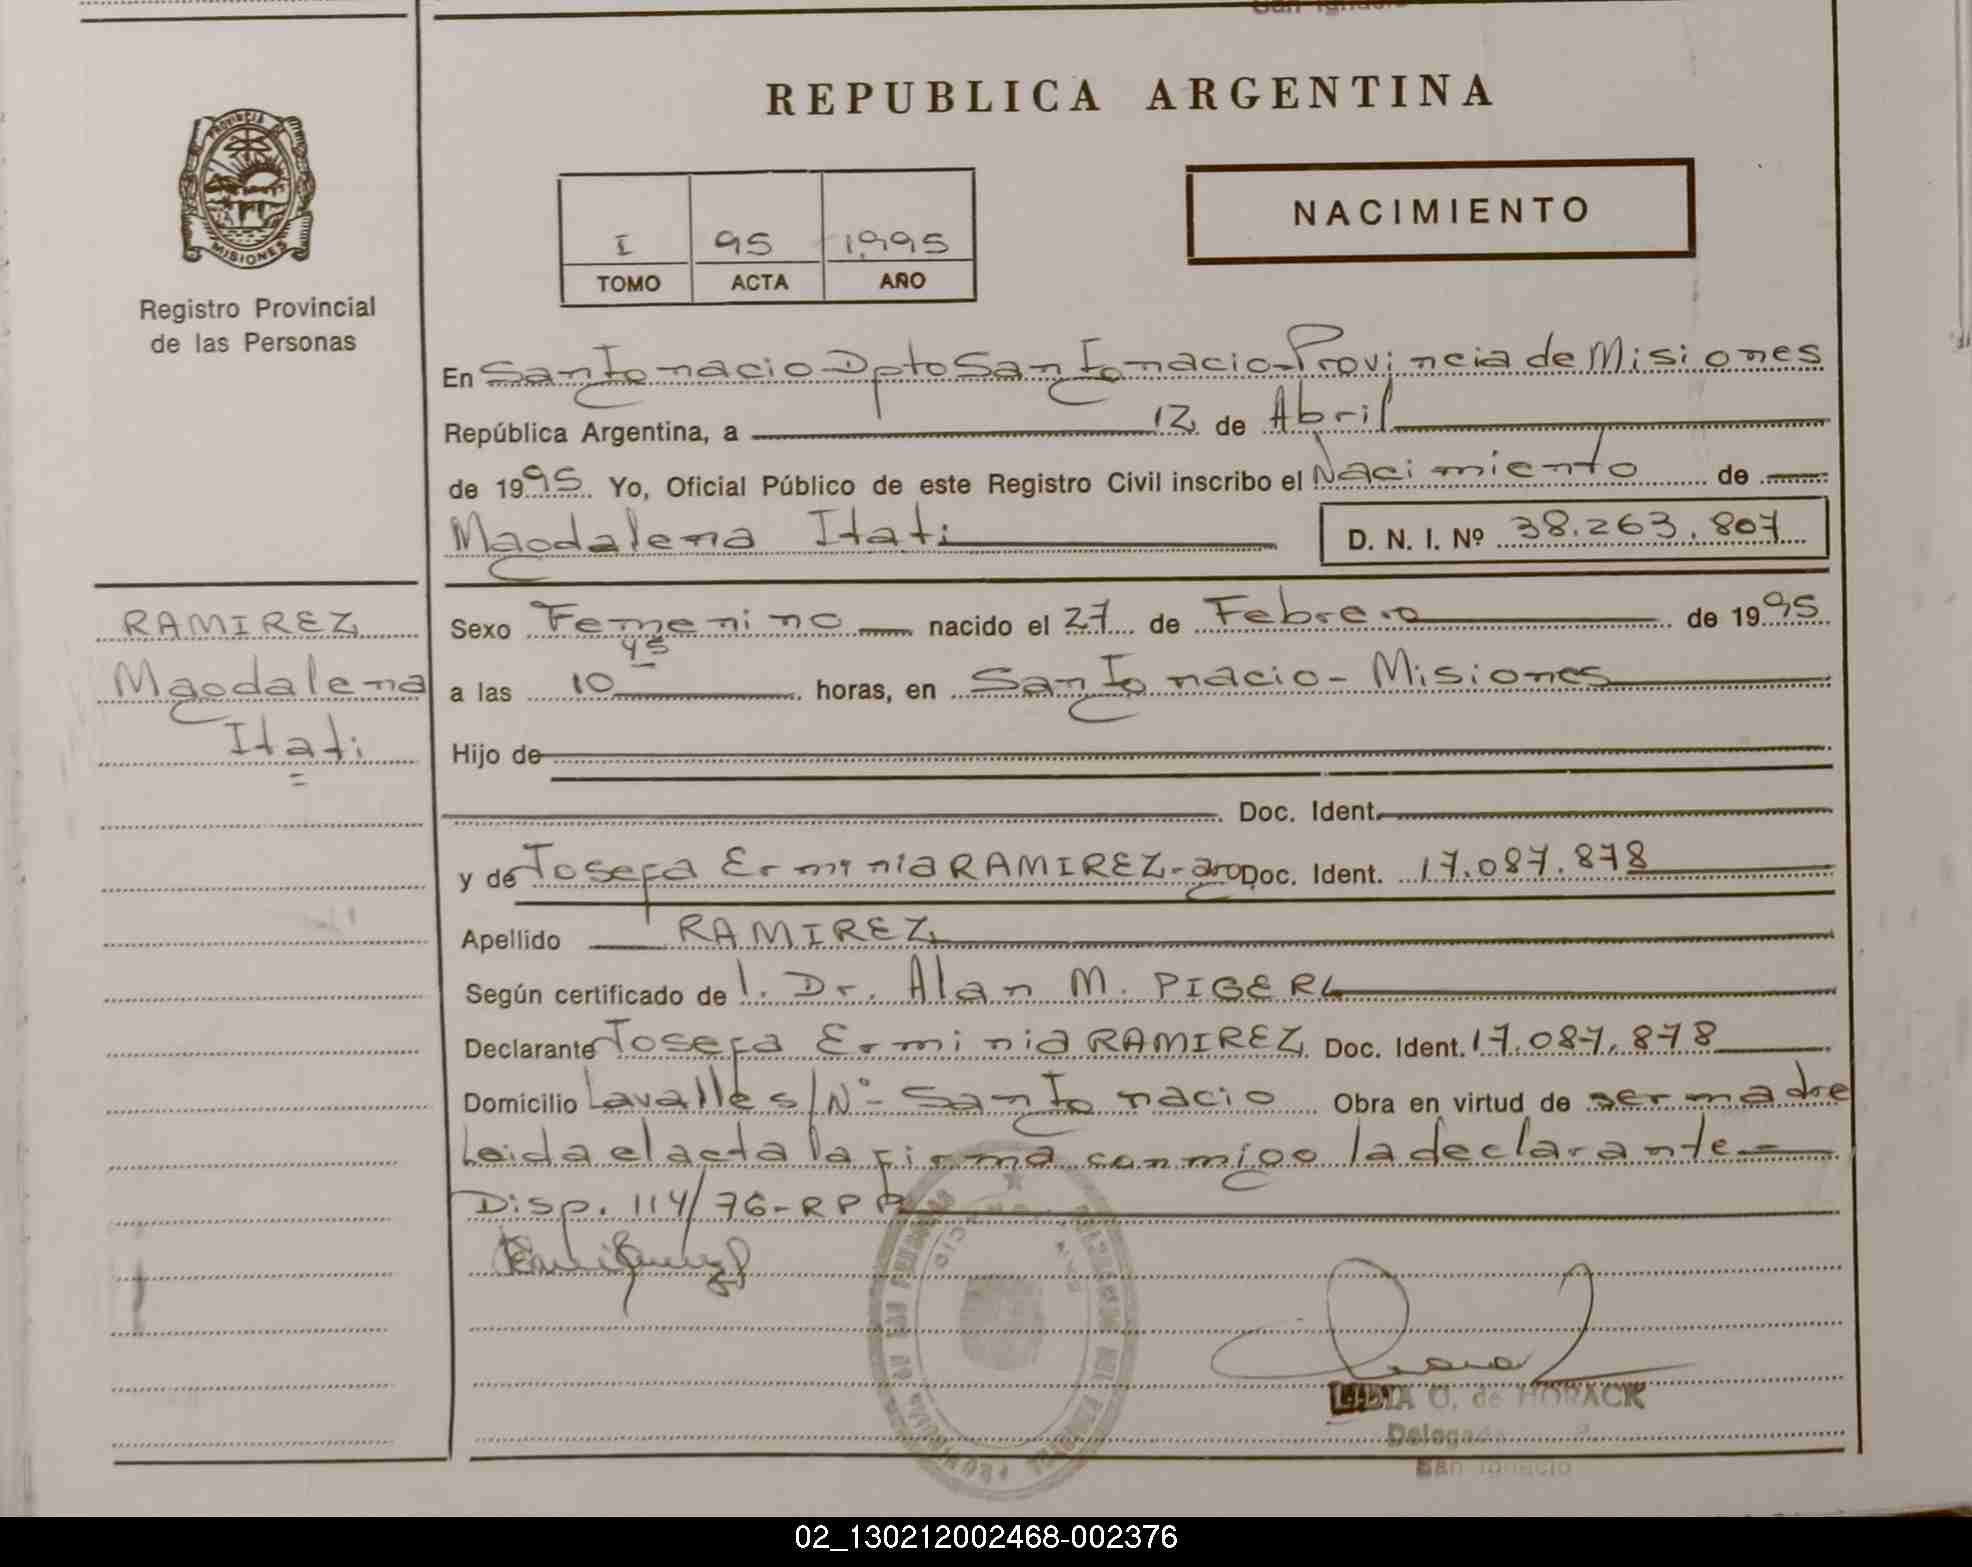 REPUBLICA ARGENTINA
PROVINCIA DE
MISIONES
Registro Provincial
de las Personas
I 95 1,995
TOMO ACTA AÑO
NACIMIENTO
En San Ignacio Dpto San Ignacio-Provincia de Misiones
República Argentina, a 12 de Abril
de 1995 Yo, Oficial Público de este Registro Civil inscribo el Nacimiento de
Magdalena Itati D. N. I. Nº 38.263.807
RAMIREZ
Magdalena
Itati
Sexo Femenino nacido el 27 de Febrero de 1995
a las 10 45 horas, en San Ignacio - Misiones
Hijo de
Doc. Ident.
y de Josefa Erminia RAMIREZ-arg Doc. Ident. 17.087.878
Apellido RAMIREZ
Según certificado de l. Dr. Alan M. PIGERL
Declarante Josefa Erminia RAMIREZ Doc. Ident. 17.087.878
Domicilio Lavalle s/Nº- San Ignacio Obra en virtud de ser madre
Leida el acta la firma conmigo la declarante=
Disp. 114/76-RPP
LIDIA O. de HORACK
Delegada
San Ignacio
02_130212002468-002376